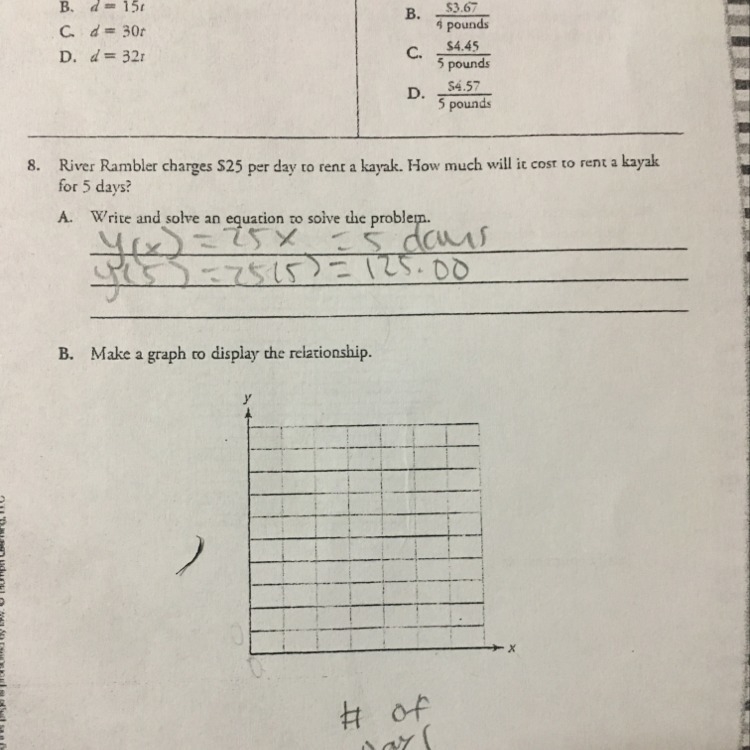 B. d = 15t
C. d = 30t
D. d = 32t
B. $3.67
4 pounds
C. $4.45
5 pounds
D. $4.57
5 pounds
8. River Rambler charges $25 per day to rent a kayak. How much will it cost to rent a kayak
for 5 days?
A. Write and solve an equation to solve the problem.
y(x) = 25x = 5 days
y(5) = 25(5) = 125.00
B. Make a graph to display the relationship.
y
x
0
0
# of
days